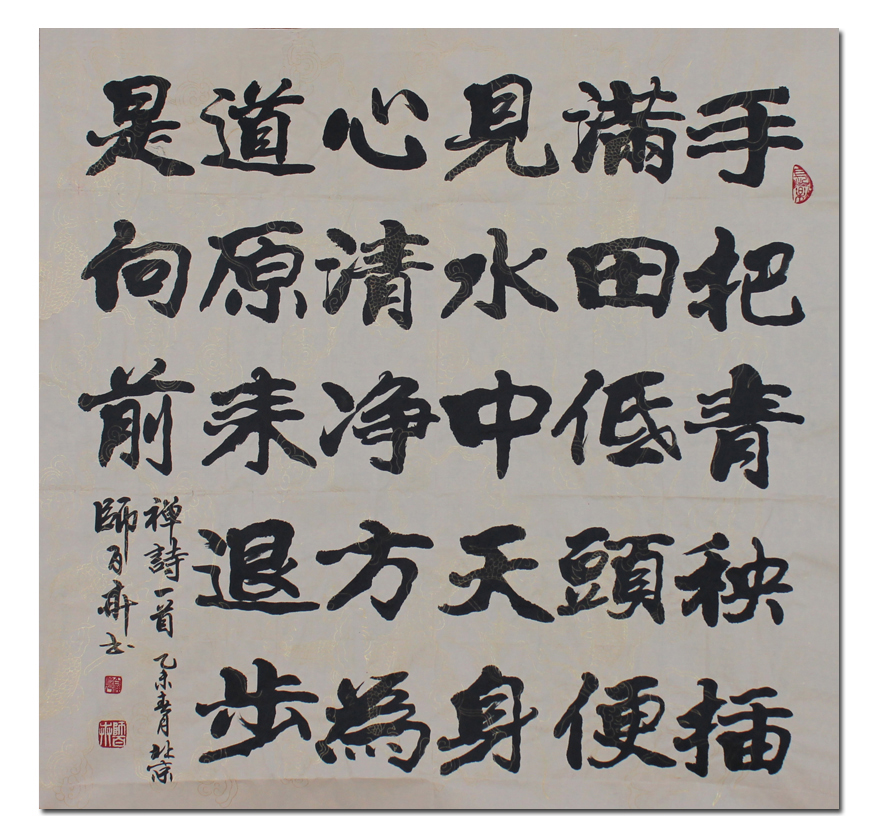 手把青秧插
滿田低頭便
見水中天身
心清净方為
道原来退步
是向前
禅詩一首 乙未春月北京
師 书